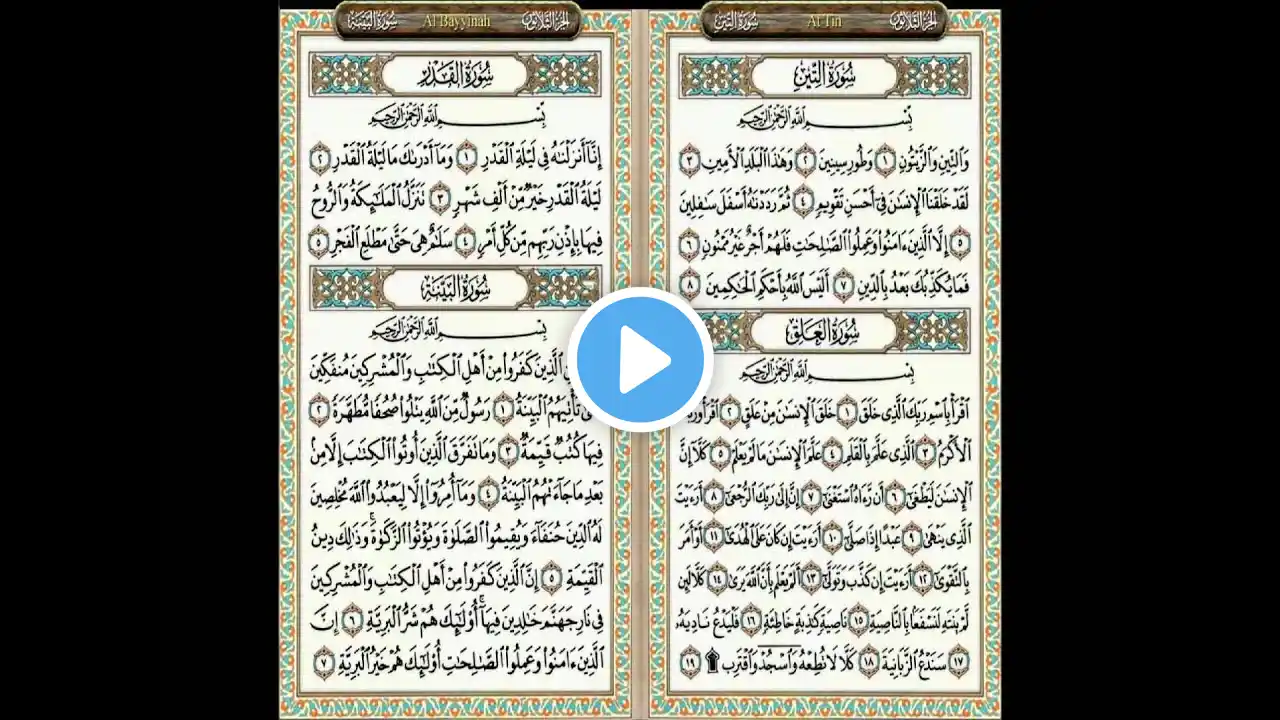 الجزء الثلاثون
At Tin
سورة التين
سُورَةُ التِّينِ
بِسْمِ ٱللَّهِ ٱلرَّحْمَٰنِ ٱلرَّحِيمِ
وَٱلتِّينِ وَٱلزَّيْتُونِ ١ وَطُورِ سِينِينَ ٢ وَهَٰذَا ٱلْبَلَدِ ٱلْأَمِينِ ٣
لَقَدْ خَلَقْنَا ٱلْإِنسَٰنَ فِىٓ أَحْسَنِ تَقْوِيمٍ ٤ ثُمَّ رَدَدْنَٰهُ أَسْفَلَ سَٰفِلِينَ
٥ إِلَّا ٱلَّذِينَ ءَامَنُوا۟ وَعَمِلُوا۟ ٱلصَّٰلِحَٰتِ فَلَهُمْ أَجْرٌ غَيْرُ مَمْنُونٍ ٦
فَمَا يُكَذِّبُكَ بَعْدُ بِٱلدِّينِ ٧ أَلَيْسَ ٱللَّهُ بِأَحْكَمِ ٱلْحَٰكِمِينَ ٨
سُورَةُ العَلَقِ
بِسْمِ ٱللَّهِ ٱلرَّحْمَٰنِ ٱلرَّحِيمِ
ٱقْرَأْ بِٱسْمِ رَبِّكَ ٱلَّذِى خَلَقَ ١ خَلَقَ ٱلْإِنسَٰنَ مِنْ عَلَقٍ ٢ ٱقْرَأْ وَرَبُّكَ
ٱلْأَكْرَمُ ٣ ٱلَّذِى عَلَّمَ بِٱلْقَلَمِ ٤ عَلَّمَ ٱلْإِنسَٰنَ مَا لَمْ يَعْلَمْ ٥ كَلَّآ إِنَّ
ٱلْإِنسَٰنَ لَيَطْغَىٰٓ ٦ أَن رَّءَاهُ ٱسْتَغْنَىٰٓ ٧ إِنَّ إِلَىٰ رَبِّكَ ٱلرُّجْعَىٰٓ ٨ أَرَءَيْتَ
ٱلَّذِى يَنْهَىٰ ٩ عَبْدًا إِذَا صَلَّىٰٓ ١٠ أَرَءَيْتَ إِن كَانَ عَلَى ٱلْهُدَىٰٓ ١١ أَوْ أَمَرَ
بِٱلتَّقْوَىٰٓ ١٢ أَرَءَيْتَ إِن كَذَّبَ وَتَوَلَّىٰٓ ١٣ أَلَمْ يَعْلَم بِأَنَّ ٱللَّهَ يَرَىٰ ١٤ كَلَّا لَئِن
لَّمْ يَنتَهِ لَنَسْفَعًۢا بِٱلنَّاصِيَةِ ١٥ نَاصِيَةٍ كَٰذِبَةٍ خَاطِئَةٍ ١٦ فَلْيَدْعُ نَادِيَهُۥ
١٧ سَنَدْعُ ٱلزَّبَانِيَةَ ١٨ كَلَّا لَا تُطِعْهُ وَٱسْجُدْ وَٱقْتَرِب ۩ ١٩
الجزء الثلاثون
Al Bayyinah
سورة البينة
سُورَةُ القَدْرِ
بِسْمِ ٱللَّهِ ٱلرَّحْمَٰنِ ٱلرَّحِيمِ
إِنَّآ أَنزَلْنَٰهُ فِى لَيْلَةِ ٱلْقَدْرِ ١ وَمَآ أَدْرَىٰكَ مَا لَيْلَةُ ٱلْقَدْرِ ٢
لَيْلَةُ ٱلْقَدْرِ خَيْرٌ مِّنْ أَلْفِ شَهْرٍ ٣ تَنَزَّلُ ٱلْمَلَٰٓئِكَةُ وَٱلرُّوحُ
فِيهَا بِإِذْنِ رَبِّهِم مِّن كُلِّ أَمْرٍ ٤ سَلَٰمٌ هِىَ حَتَّىٰ مَطْلَعِ ٱلْفَجْرِ ٥
سُورَةُ البَيِّنَةِ
بِسْمِ ٱللَّهِ ٱلرَّحْمَٰنِ ٱلرَّحِيمِ
ٱلَّذِينَ كَفَرُوا۟ مِنْ أَهْلِ ٱلْكِتَٰبِ وَٱلْمُشْرِكِينَ مُنفَكِّينَ
تَأْتِيَهُمُ ٱلْبَيِّنَةُ ١ رَسُولٌ مِّنَ ٱللَّهِ يَتْلُوا۟ صُحُفًا مُّطَهَّرَةً ٢
فِيهَا كُتُبٌ قَيِّمَةٌ ٣ وَمَا تَفَرَّقَ ٱلَّذِينَ أُوتُوا۟ ٱلْكِتَٰبَ إِلَّا مِنۢ
بَعْدِ مَا جَآءَتْهُمُ ٱلْبَيِّنَةُ ٤ وَمَآ أُمِرُوٓا۟ إِلَّا لِيَعْبُدُوا۟ ٱللَّهَ مُخْلِصِينَ
لَهُ ٱلدِّينَ حُنَفَآءَ وَيُقِيمُوا۟ ٱلصَّلَوٰةَ وَيُؤْتُوا۟ ٱلزَّكَوٰةَ ۚ وَذَٰلِكَ دِينُ
ٱلْقَيِّمَةِ ٥ إِنَّ ٱلَّذِينَ كَفَرُوا۟ مِنْ أَهْلِ ٱلْكِتَٰبِ وَٱلْمُشْرِكِينَ
فِى نَارِ جَهَنَّمَ خَٰلِدِينَ فِيهَآ ۚ أُو۟لَٰٓئِكَ هُمْ شَرُّ ٱلْبَرِيَّةِ ٦ إِنَّ
ٱلَّذِينَ ءَامَنُوا۟ وَعَمِلُوا۟ ٱلصَّٰلِحَٰتِ أُو۟لَٰٓئِكَ هُمْ خَيْرُ ٱلْبَرِيَّةِ ٧